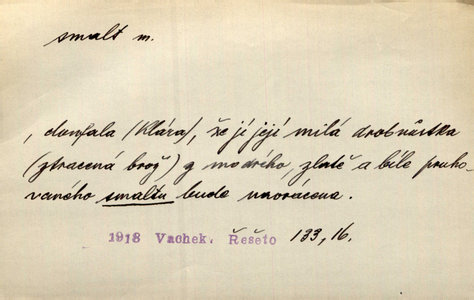 smalt m.
, doufala (Klára), že jí její milá drobnůstka
(ztracená brož) z modrého, zlatě a bíle pruho-
vaného smaltu bude navrácena.
1918 Vachek. Řešeto 133, 16.